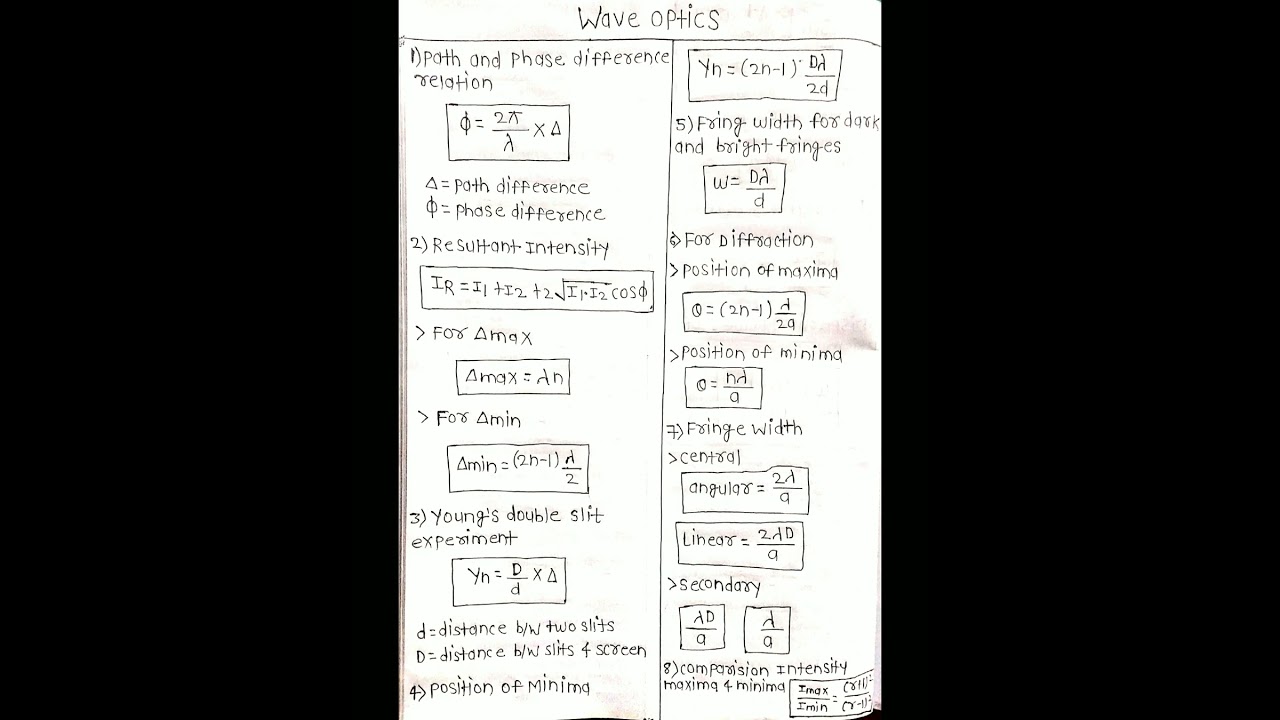 Wave Optics
1) Path and Phase difference
relation
ϕ = 2π/λ × Δ
Δ = Path difference
ϕ = Phase difference
2) Resultant Intensity
IR = I1 + I2 + 2√I1·I2 cosϕ
> For Δmax
Δmax = λn
> For Δmin
Δmin = (2n-1) λ/2
3) Young's double slit
experiment
Yn = D/d × Δ
d = distance b/w two slits
D = distance b/w slits & screen
4) Position of Minima
Yn = (2n-1) · Dλ/2d
5) Fring width for dark
and bright fringes
W = Dλ/d
6) For Diffraction
> Position of maxima
θ = (2n-1) λ/2a
> Position of minima
θ = nλ/a
7) Fringe width
> central
angular = 2λ/a
Linear = 2λD/a
> secondary
λD/a λ/a
8) comparision Intensity
maxima & minima Imax/Imin = (r+1)²/(r-1)²